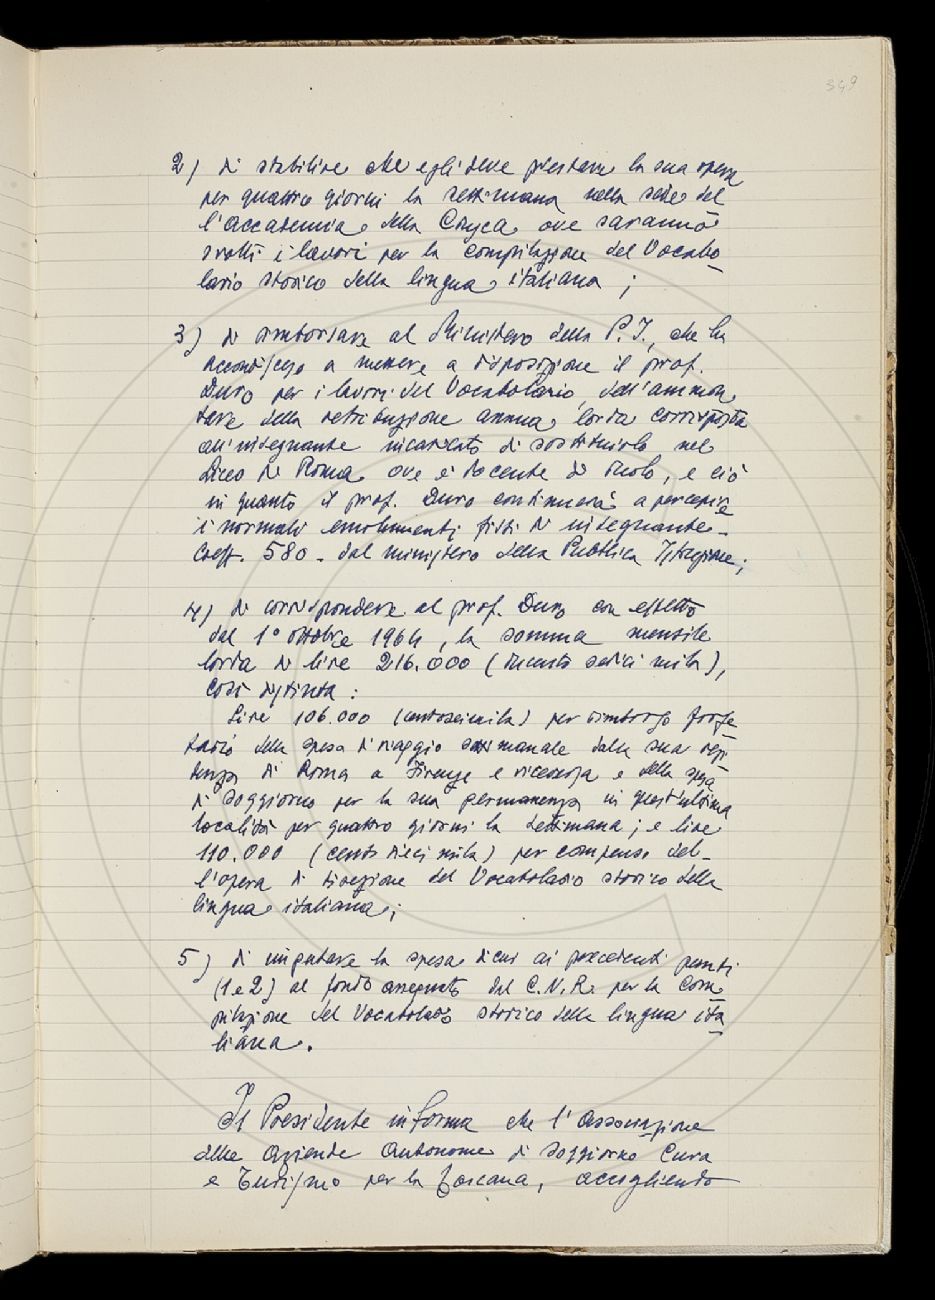 349
2) di stabilire che egli deve prestare la sua opera
per quattro giorni la settimana nella sede del
l'Accademia della Crusca ove saranno
svolti i lavori per la compilazione del Vocabo
lario storico della lingua italiana ;
3) di rimborsare al Ministero della P. I., che ha
accondisceso a mettere a disposizione il prof.
Duro per i lavori del Vocabolario, dell'ammon
tare della retribuzione annua lorda corrisposta
all'insegnante incaricato di sostituirlo nel
Liceo di Roma ove è docente di ruolo, e ciò
in quanto il prof. Duro continuerà a percepire
i normali emolumenti fissi di insegnante -
Coeff. 580 - dal ministero della Pubblica Istruzione ;
4) di corrispondere al prof. Duro con effetto
dal 1° ottobre 1964, la somma mensile
lorda di lire 216.000 (duecento sedici mila),
così distinta :
Lire 106.000 (centoseimila) per rimborso forfe
tario della spesa di viaggio settimanale dalla sua resi
denza di Roma a Firenze e viceversa e della spesa
di soggiorno per la sua permanenza in quest'ultima
località per quattro giorni la settimana ; e lire
110.000 (cento dieci mila) per compenso del-
l'opera di direzione del Vocabolario storico della
lingua italiana ;
5) di imputare la spesa di cui ai precedenti punti
(1 e 2) al fondo assegnato dal C.N.R. per la Com
pilazione del Vocabolario storico della lingua ita
liana.
Il Presidente informa che l'Associazione
delle Aziende Autonome di Soggiorno Cura
e Turismo per la Toscana, accogliendo